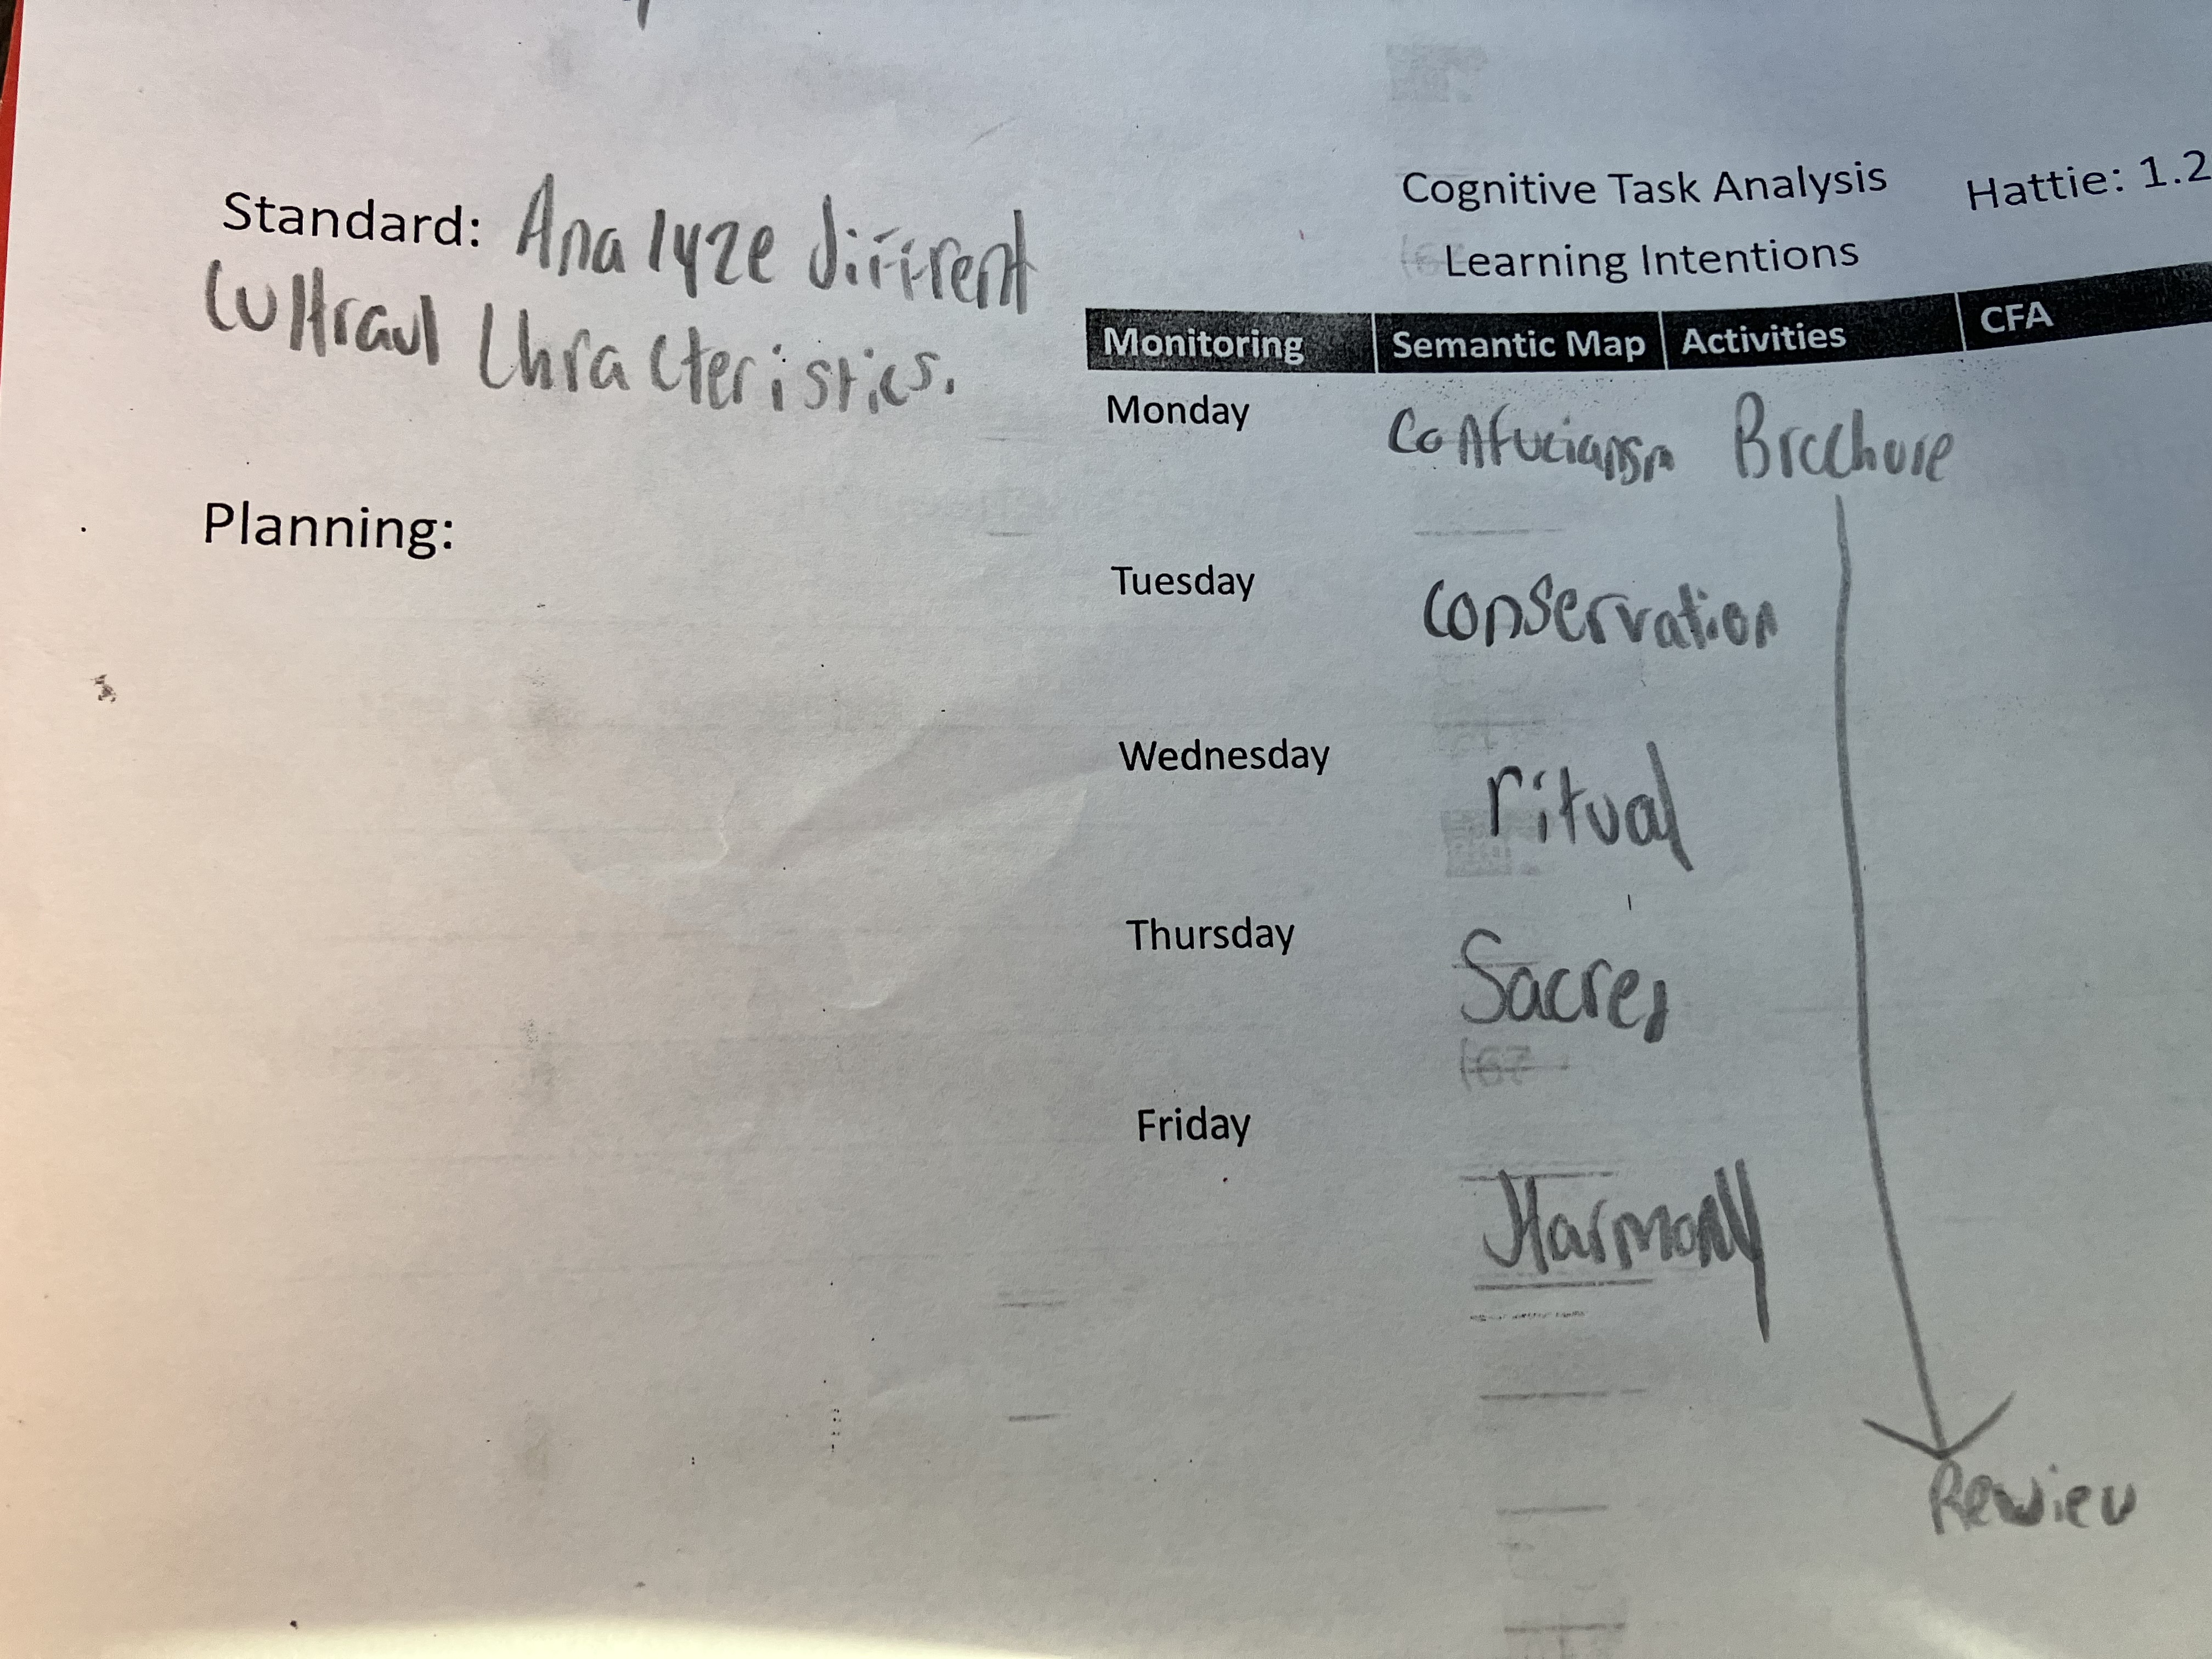 Cognitive Task Analysis Hattie: 1.2
Learning Intentions
Standard: Analyze diffrent
Cultraul Chracteristics.
Planning:
Monitoring Semantic Map Activities CFA
Monday Confuciansm Brochure
Tuesday Conservation
Wednesday ritual
Thursday Sacred
Friday Harmony
Rewiew